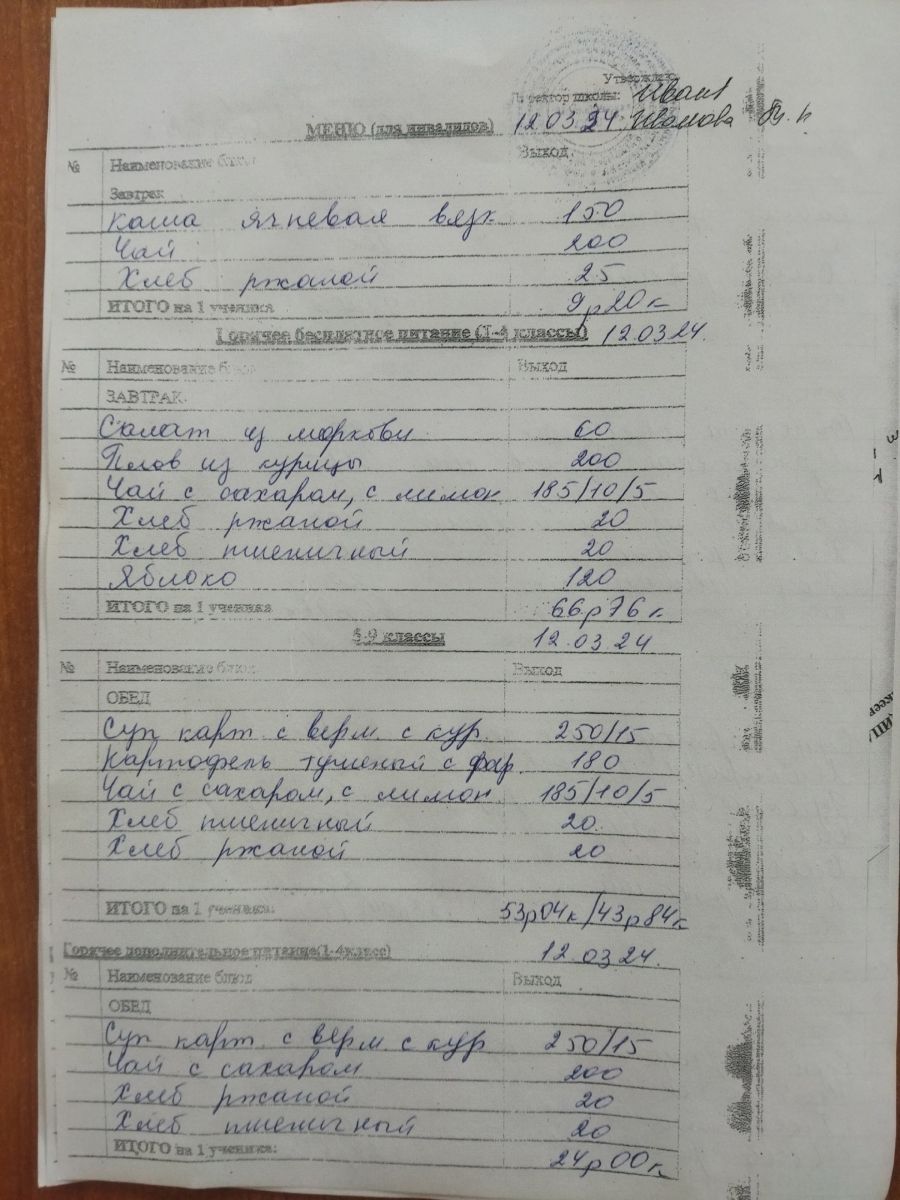 Утверждаю
Директор школы: Иван
МЕНЮ (для инвалидов) 12.03.24. Иванова
№ Наименование блюд Выход
Завтрак
Каша ячневая вязк 150
Чай 200
Хлеб ржаной 25
ИТОГО на 1 ученика 9р20к
Горячее бесплатное питание (1-4 классы) 12.03.24.
№ Наименование блюд Выход
ЗАВТРАК
Салат из моркови 60
Плов из курицы 200
Чай с сахаром, с лимон 185/10/5
Хлеб ржаной 20
Хлеб пшеничный 20
Яблоко 120
ИТОГО на 1 ученика 66р76к
5-9 классы 12.03.24
№ Наименование блюд Выход
ОБЕД
Суп карт с верм. с кур. 250/15
Картофель тушеный с фар. 180
Чай с сахаром, с лимон. 185/10/5
Хлеб пшеничный 20
Хлеб ржаной 20
ИТОГО на 1 ученика: 53р04к/43р84к
Горячее дополнительное питание(1-4класс) 12.03.24.
№ Наименование блюд Выход
ОБЕД
Суп карт. с верм. с кур 250/15
Чай с сахаром 200
Хлеб ржаной 20
Хлеб пшеничный 20
ИТОГО на 1 ученика: 24р00к